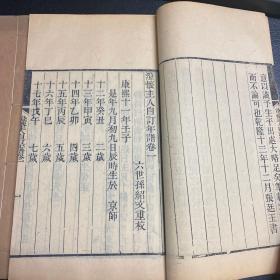 意以識予生平出處大略足矣
而不論可也乾隆十三年十二月張廷玉書
澄懷主人自訂年譜卷一
六世孫紹文重校
康熙十一年壬子
是年九月初九日辰時生於 京師
十二年癸丑 二歲
十三年甲寅 三歲
十四年乙卯 四歲
十五年丙辰 五歲
十六年丁巳 六歲
十七年戊午 七歲